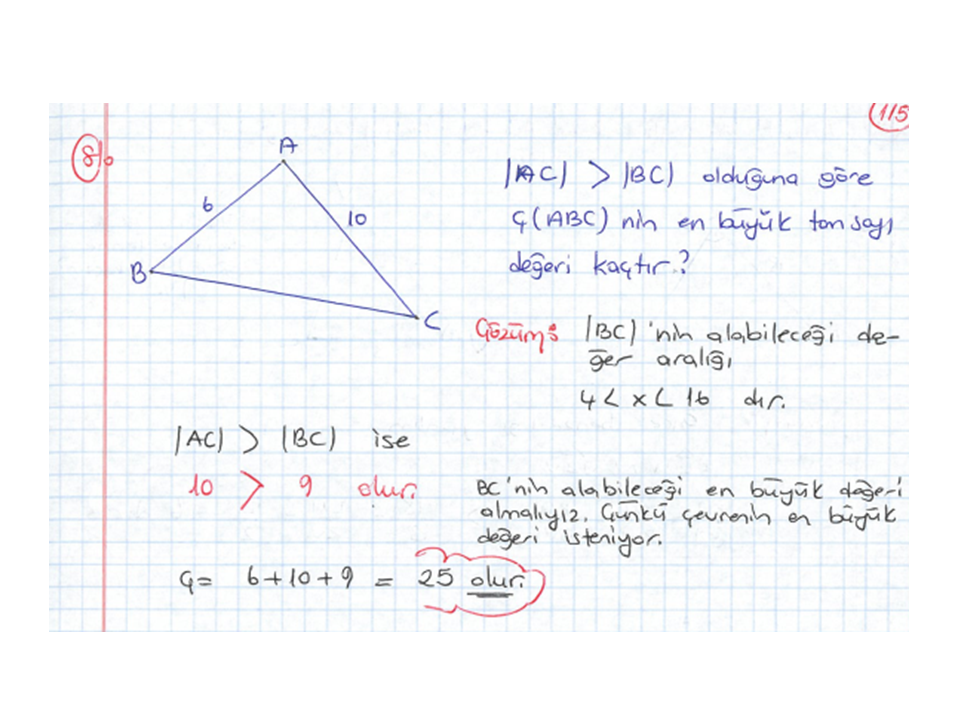 115
8)
A
6
10
B
C
|AC| > |BC| olduğuna göre
Ç(ABC) nin en büyük tam sayı
değeri kaçtır.?
Çözüm: |BC|'nin alabileceği de-
ğer aralığı
4 < x < 16 dır.
|AC| > |BC| ise
10 > 9 olur.
BC'nin alabileceği en büyük değeri
almalıyız. Çünkü çevrenin en büyük
değeri isteniyor.
Ç= 6+10+9 = 25 olur.